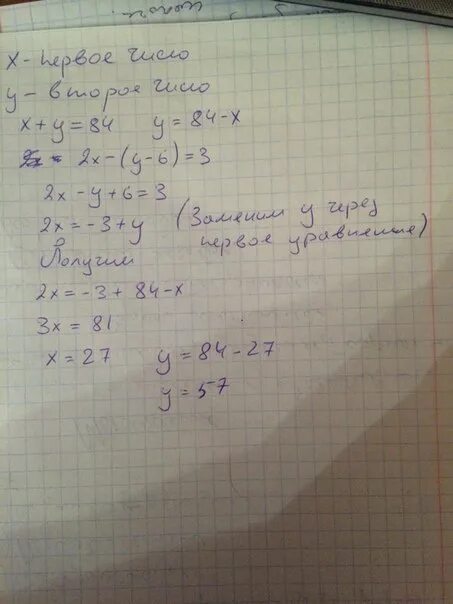 x - первое число
y - второе число
x + y = 84 y = 84 - x
2x - (y - 6) = 3
2x - y + 6 = 3
2x = -3 + y (Заменим y через первое уравнение)
Получим
2x = -3 + 84 - x
3x = 81
x = 27 y = 84 - 27
y = 57